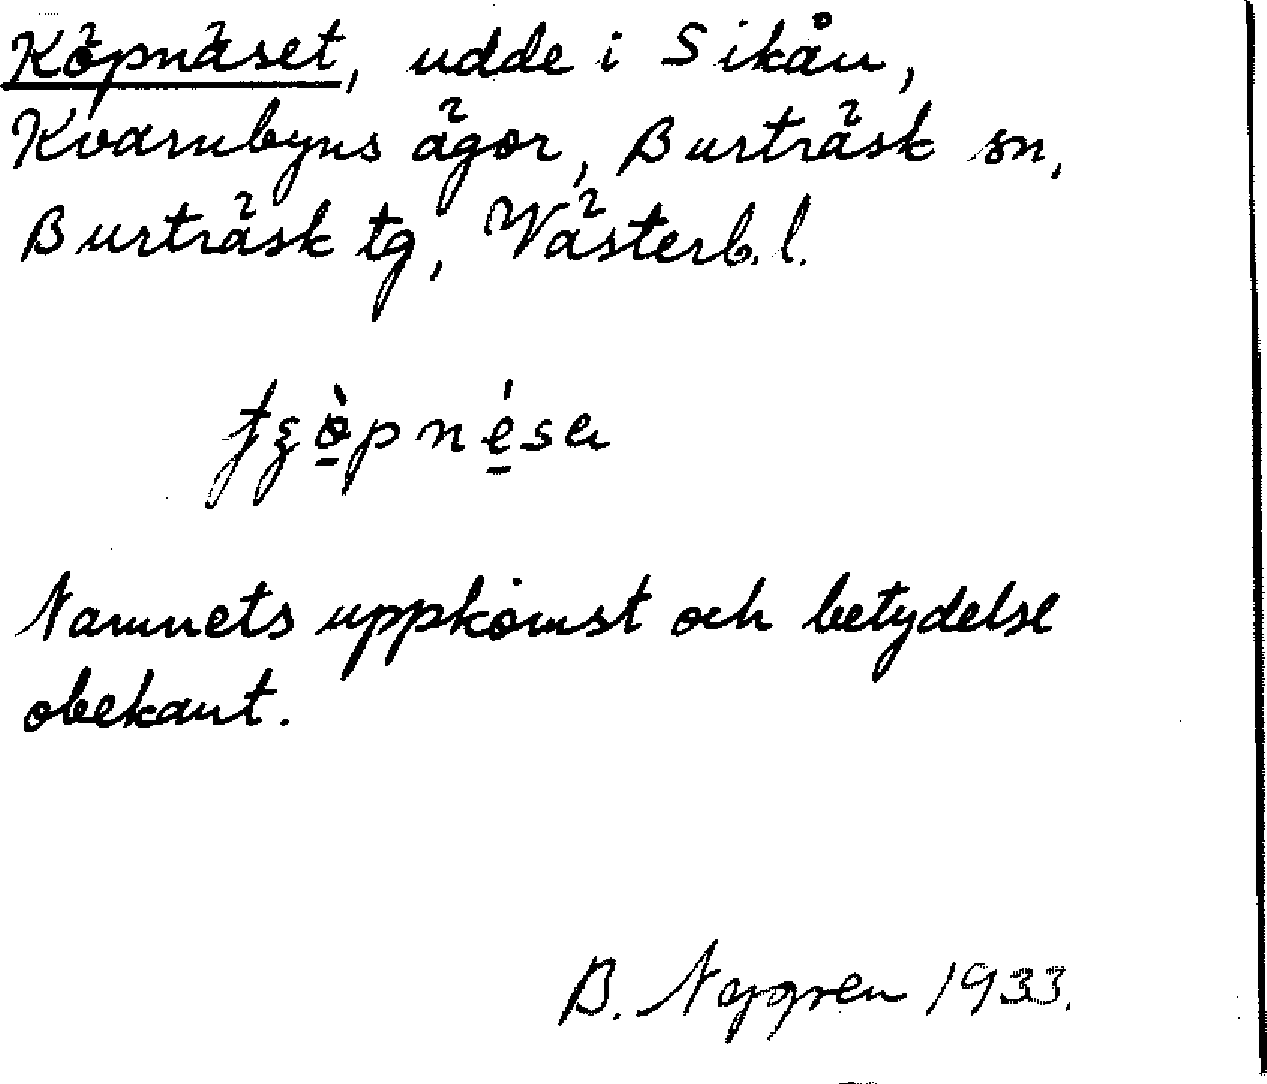 Köpnäset, udde i Sikån,
Kvarnbyns ägor, Burträsk sn,
Burträsk tg, Västerb. l.
Namnets uppkomst och betydelse
obekant.
B. Nygren 1933.